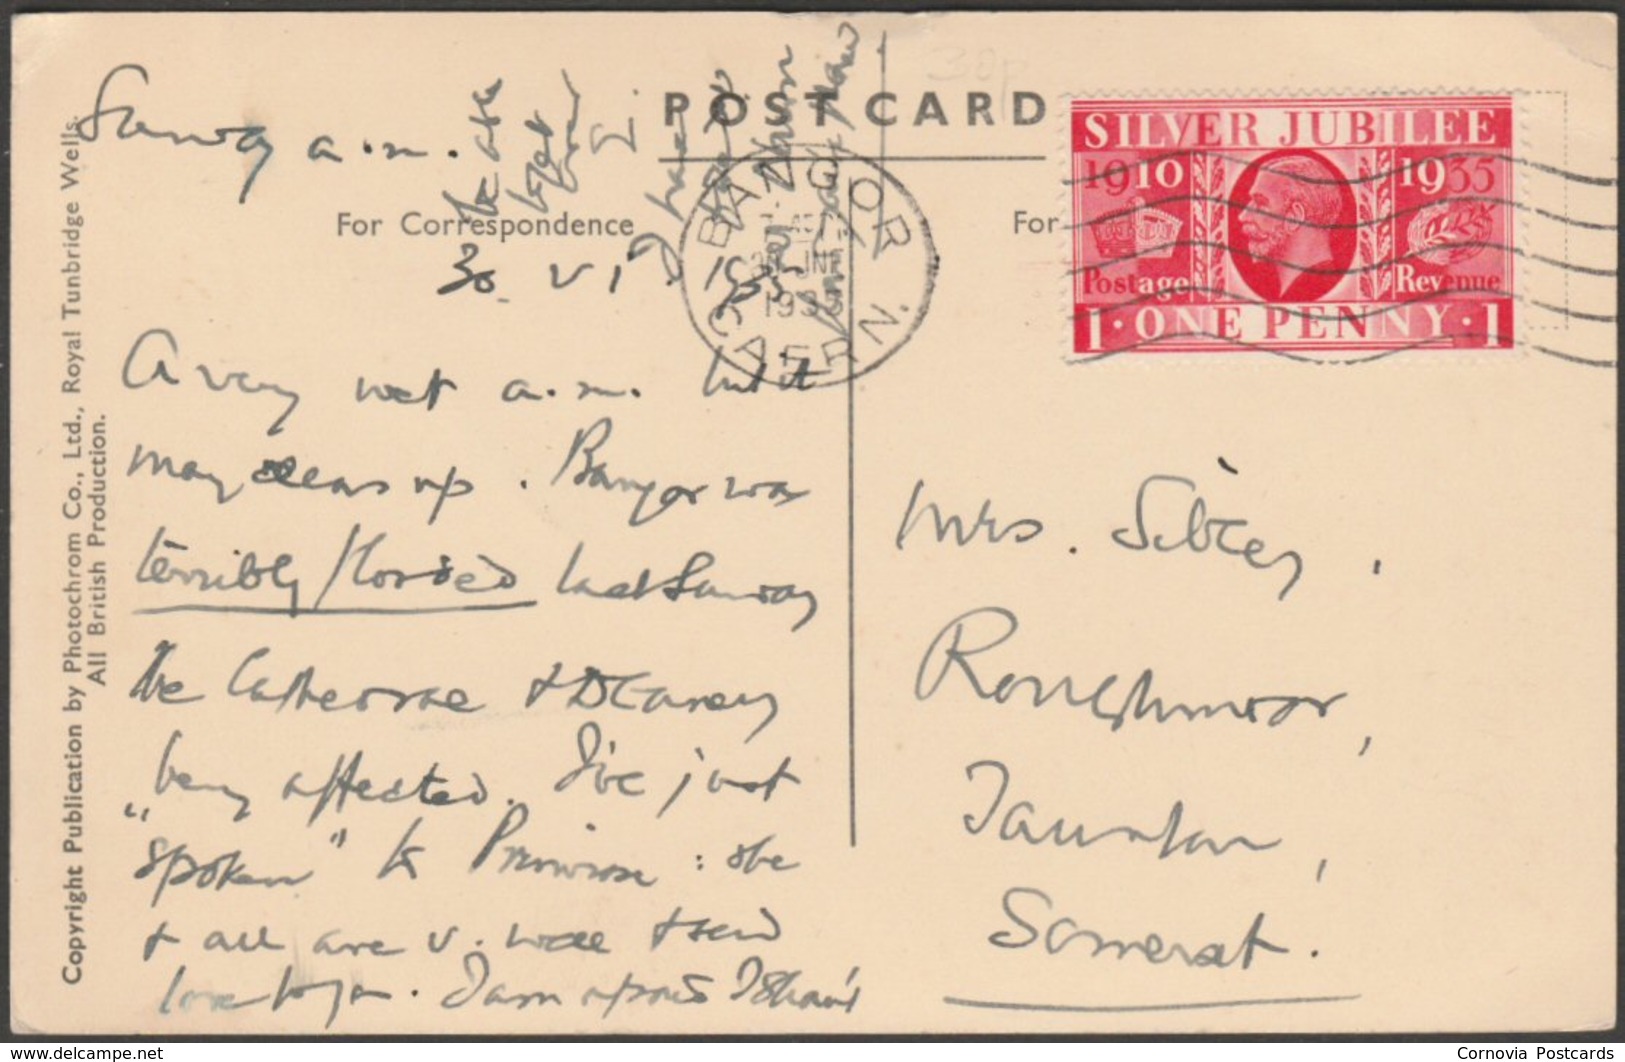 POST CARD
30p
Sunday a.m.
For Correspondence
For
30. VI 1935
BANGOR
30 JNE
1935
CAERN.
SILVER JUBILEE
1910 1935
Postage Revenue
1 · ONE PENNY · 1
A very wet a.m. but it
may clear up. Bangor was
terribly flooded last Sunday
the Cathedral & Deanery
being affected. I've just
"spoken" to Primrose: she
& all are v. well & send
love to you. I am afraid I shan't
be able
to get
I have
Mrs. Sibley,
Roughmoor,
Taunton,
Somerset.
Copyright Publication by Photochrom Co., Ltd., Royal Tunbridge Wells.
All British Production.
www.delcampe.net
Cornovia Postcards